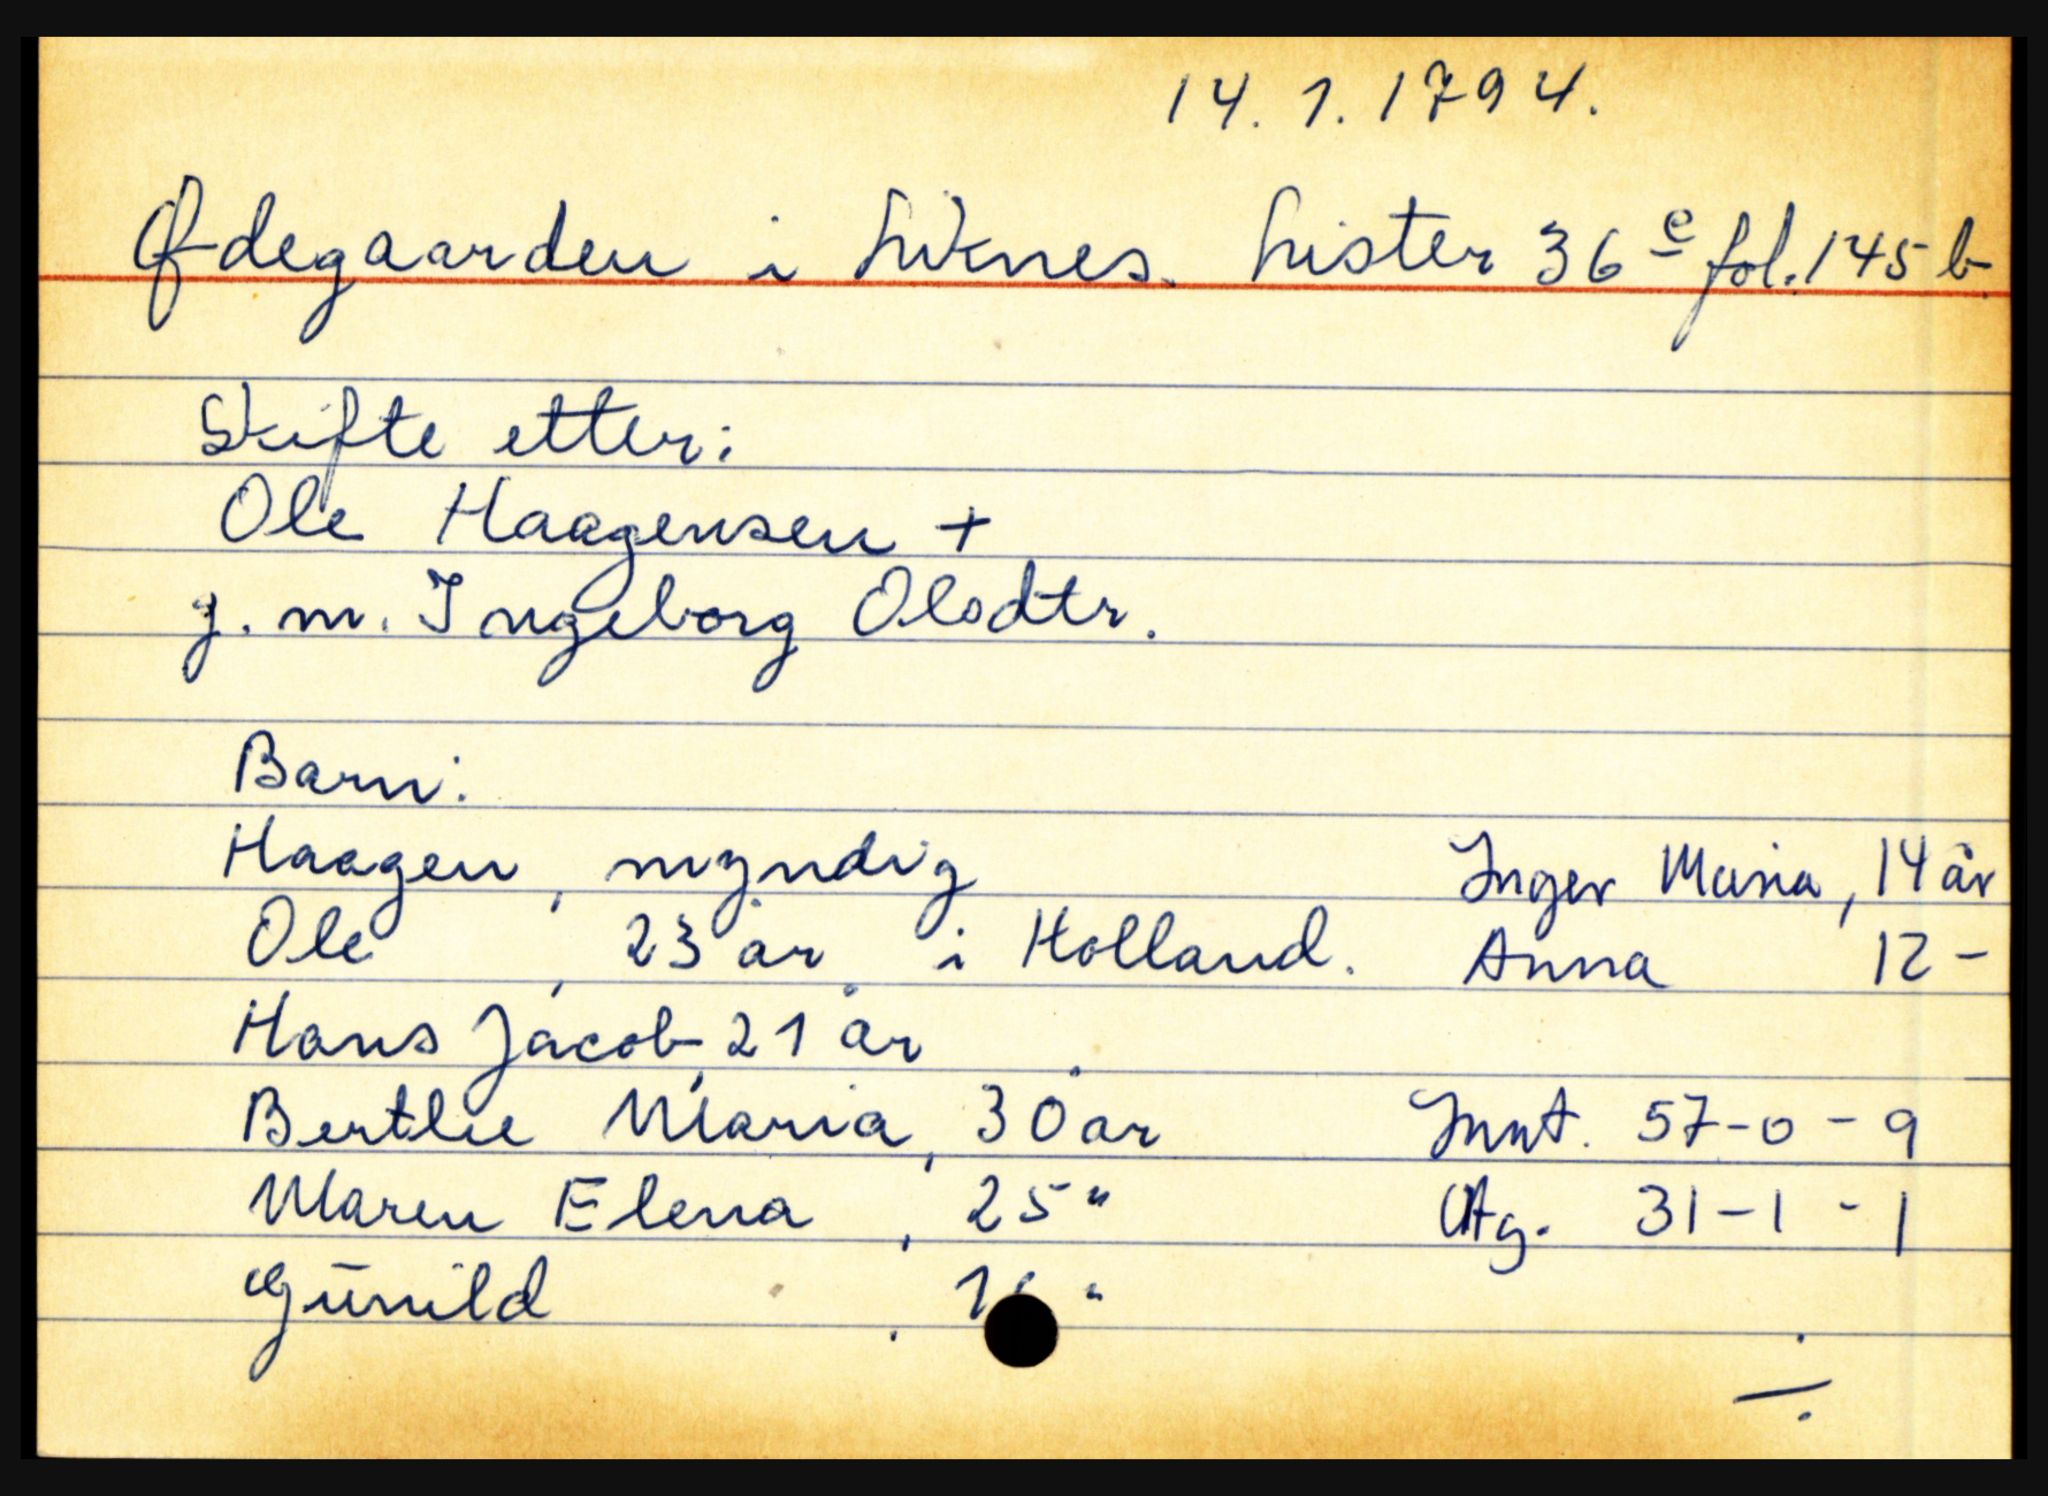 14.1.1794.
Ødegaarden i Liknes. Lister 36 e fol. 145 b.
Skifte etter:
Ole Haagensen +
g. m. Ingeborg Olsdtr.
Barn:
Haagen, myndig
Ole, 23 år i Holland.
Hans Jacob, 21 år
Berthe Maria, 30 år
Maren Elena, 25 "
Gunild, "
Inger Maria, 14 år
Anna 12 -
Innt. 57-0-9
Utg. 31-1-1